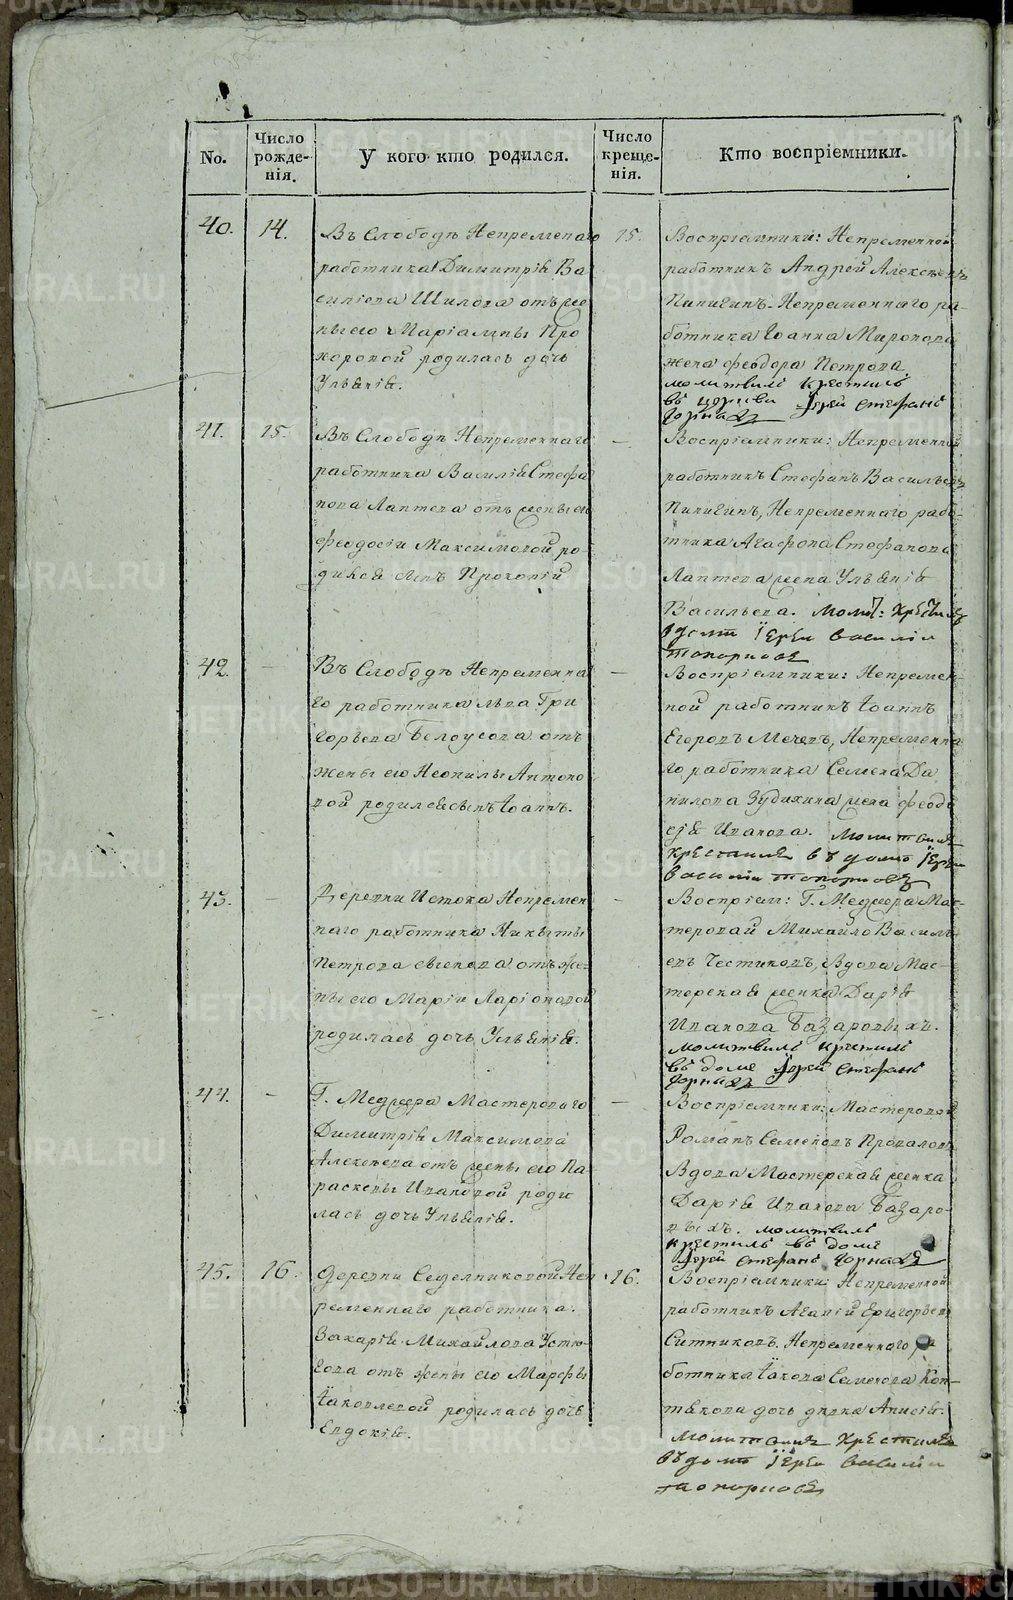 No.
Число рожде-нія.
У кого кто родился.
Число креще-нія.
Кто воспріемники.
40.
14.
Въ Слободѣ Непременнаго
работника Димитрія Ва
силіева Шилова отъ же
ны его Маріамны Про
хоровой родилась дочь
Ульянія.
15.
Воспріемники: Непременной
работникъ Андрей Алексѣевъ
Пинигинъ. Непременнаго ра-
ботника Іоанна Миронова
жена Феодора Петрова
молитвилъ крестилъ
въ церкви Іерей Стефанъ
41.
15.
Въ Слободѣ Непременнаго
работника Василія Стефа
нова Лаптева отъ жены его
Феодосіи Максимовой ро-
дился сынъ Прокопій
—
Воспріемники: Непременной
работникъ Стефанъ Васильевъ
Пинигинъ, Непременнаго рабо-
тника Агафона Стефанова
Лаптева жена Ульянія
Васильева. Молит: Крестилъ
въ дому Іерей Василій
Топорковъ
42.
—
Въ Слободѣ Непременна
го работника Льва Гри
горьева Белоусова отъ
жены его Неонилы Антоно
вой родился сынъ Іоаннъ.
—
Воспріемники: Непремен-
ной работникъ Іоаннъ
Егоровъ Мечевъ, Непременна
го работника Семена Да
нилова Зудихина жена Феодо
сія Иванова. Молитвилъ
Крестилъ въ дому Іерей
Василій Топорковъ
43.
—
Деревни Истока Непремен
наго работника Никиты
Петрова Евгенова отъ же-
ны его Маріи Ларіоновой
родилась дочь Ульянія.
—
Воспріем: Г. Меджера Мас-
теровай Михайло Василь
евъ Чистиковъ, Вдова Мас-
терская женка Дарія
Иванова Базаровыхъ.
молитвилъ крестилъ
въ доме Іерей Стефанъ
44.
—
Г. Меджера Мастероваго
Димитрія Максимова
Алексеева отъ жены его Па
расковы Ивановой роди
лась дочь Ульянія.
—
Воспріемники: Мастеровой
Романъ Семеновъ Проваловъ
Вдова Мастерская женка
Дарія Иванова Базаро-
выхъ. молитвилъ
крестилъ въ доме
Іерей Стефанъ
45.
16.
Деревни Седелниковой Неп
ременнаго работника
Захарія Михайлова Устю-
гова отъ жены его Марфы
Іаковлевой родилась дочь
Евдокія.
16.
Воспріемники: Непременной
работникъ Агапій Григорьевъ
Ситниковъ. Непременнаго ра
ботника Іакова Семенова Коп-
тякова дочь девка Анисія.
Молитвилъ Крестилъ
въ дому Іерей Василій
Топорковъ
METRIKI.GASO-URAL.RU